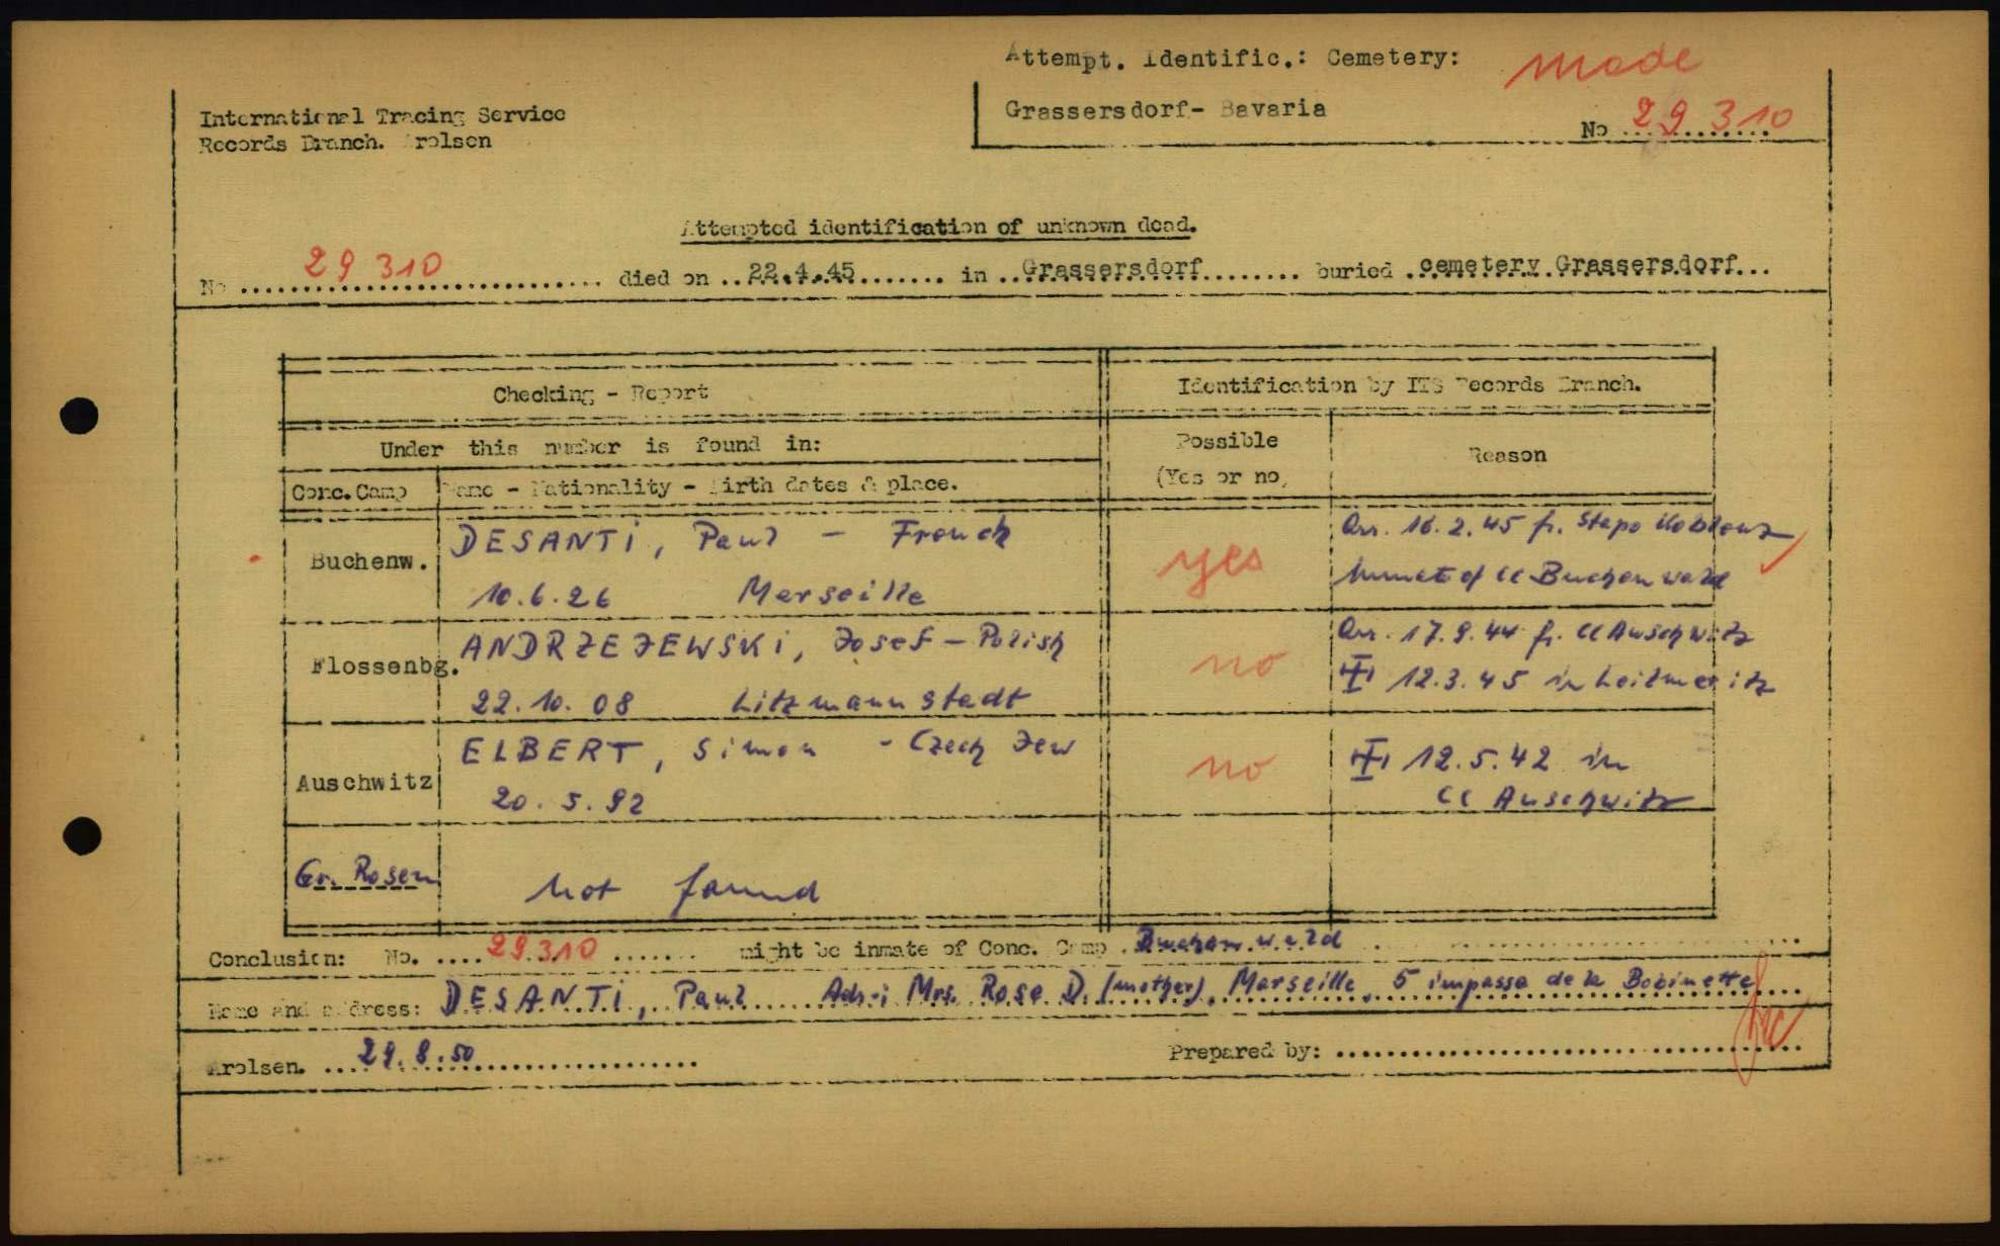 Attempt. Identific.: Cemetery: made
Grassersdorf- Bavaria
No 29 310
International Tracing Service
Records Branch. Arolsen
Attempted identification of unknown dead.
No 29 310 died on 22.4.45 in Grassersdorf buried cemetery Grassersdorf
Checking - Report
Identification by ITS Records Branch.
Under this number is found in:
Possible
(Yes or no)
Reason
Conc. Camp Name - Nationality - Birth dates & place.
Buchenw. DESANTI, Paul - French yes Arr. 16.2.45 fr. Stapo Koblenz
10.6.26 Marseille Inmate of CC Buchenwald
Flossenbg. ANDRZEJEWSKI, Josef - Polish no Arr. 17.9.44 fr. CC Auschwitz
22.10.08 Litzmannstadt 12.3.45 in Leitmeritz
Auschwitz ELBERT, Simon - Czech Jew no 12.5.42 in
20.5.92 CC Auschwitz
Gr. Rosen not found
Conclusion: No. 29310 might be inmate of Conc. Camp Buchenwald
Name and address: DESANTI, Paul Adr.: Mrs. Rose D. (mother), Marseille, 5 impasse de la Bobinette
Arolsen. 29.8.50 Prepared by: